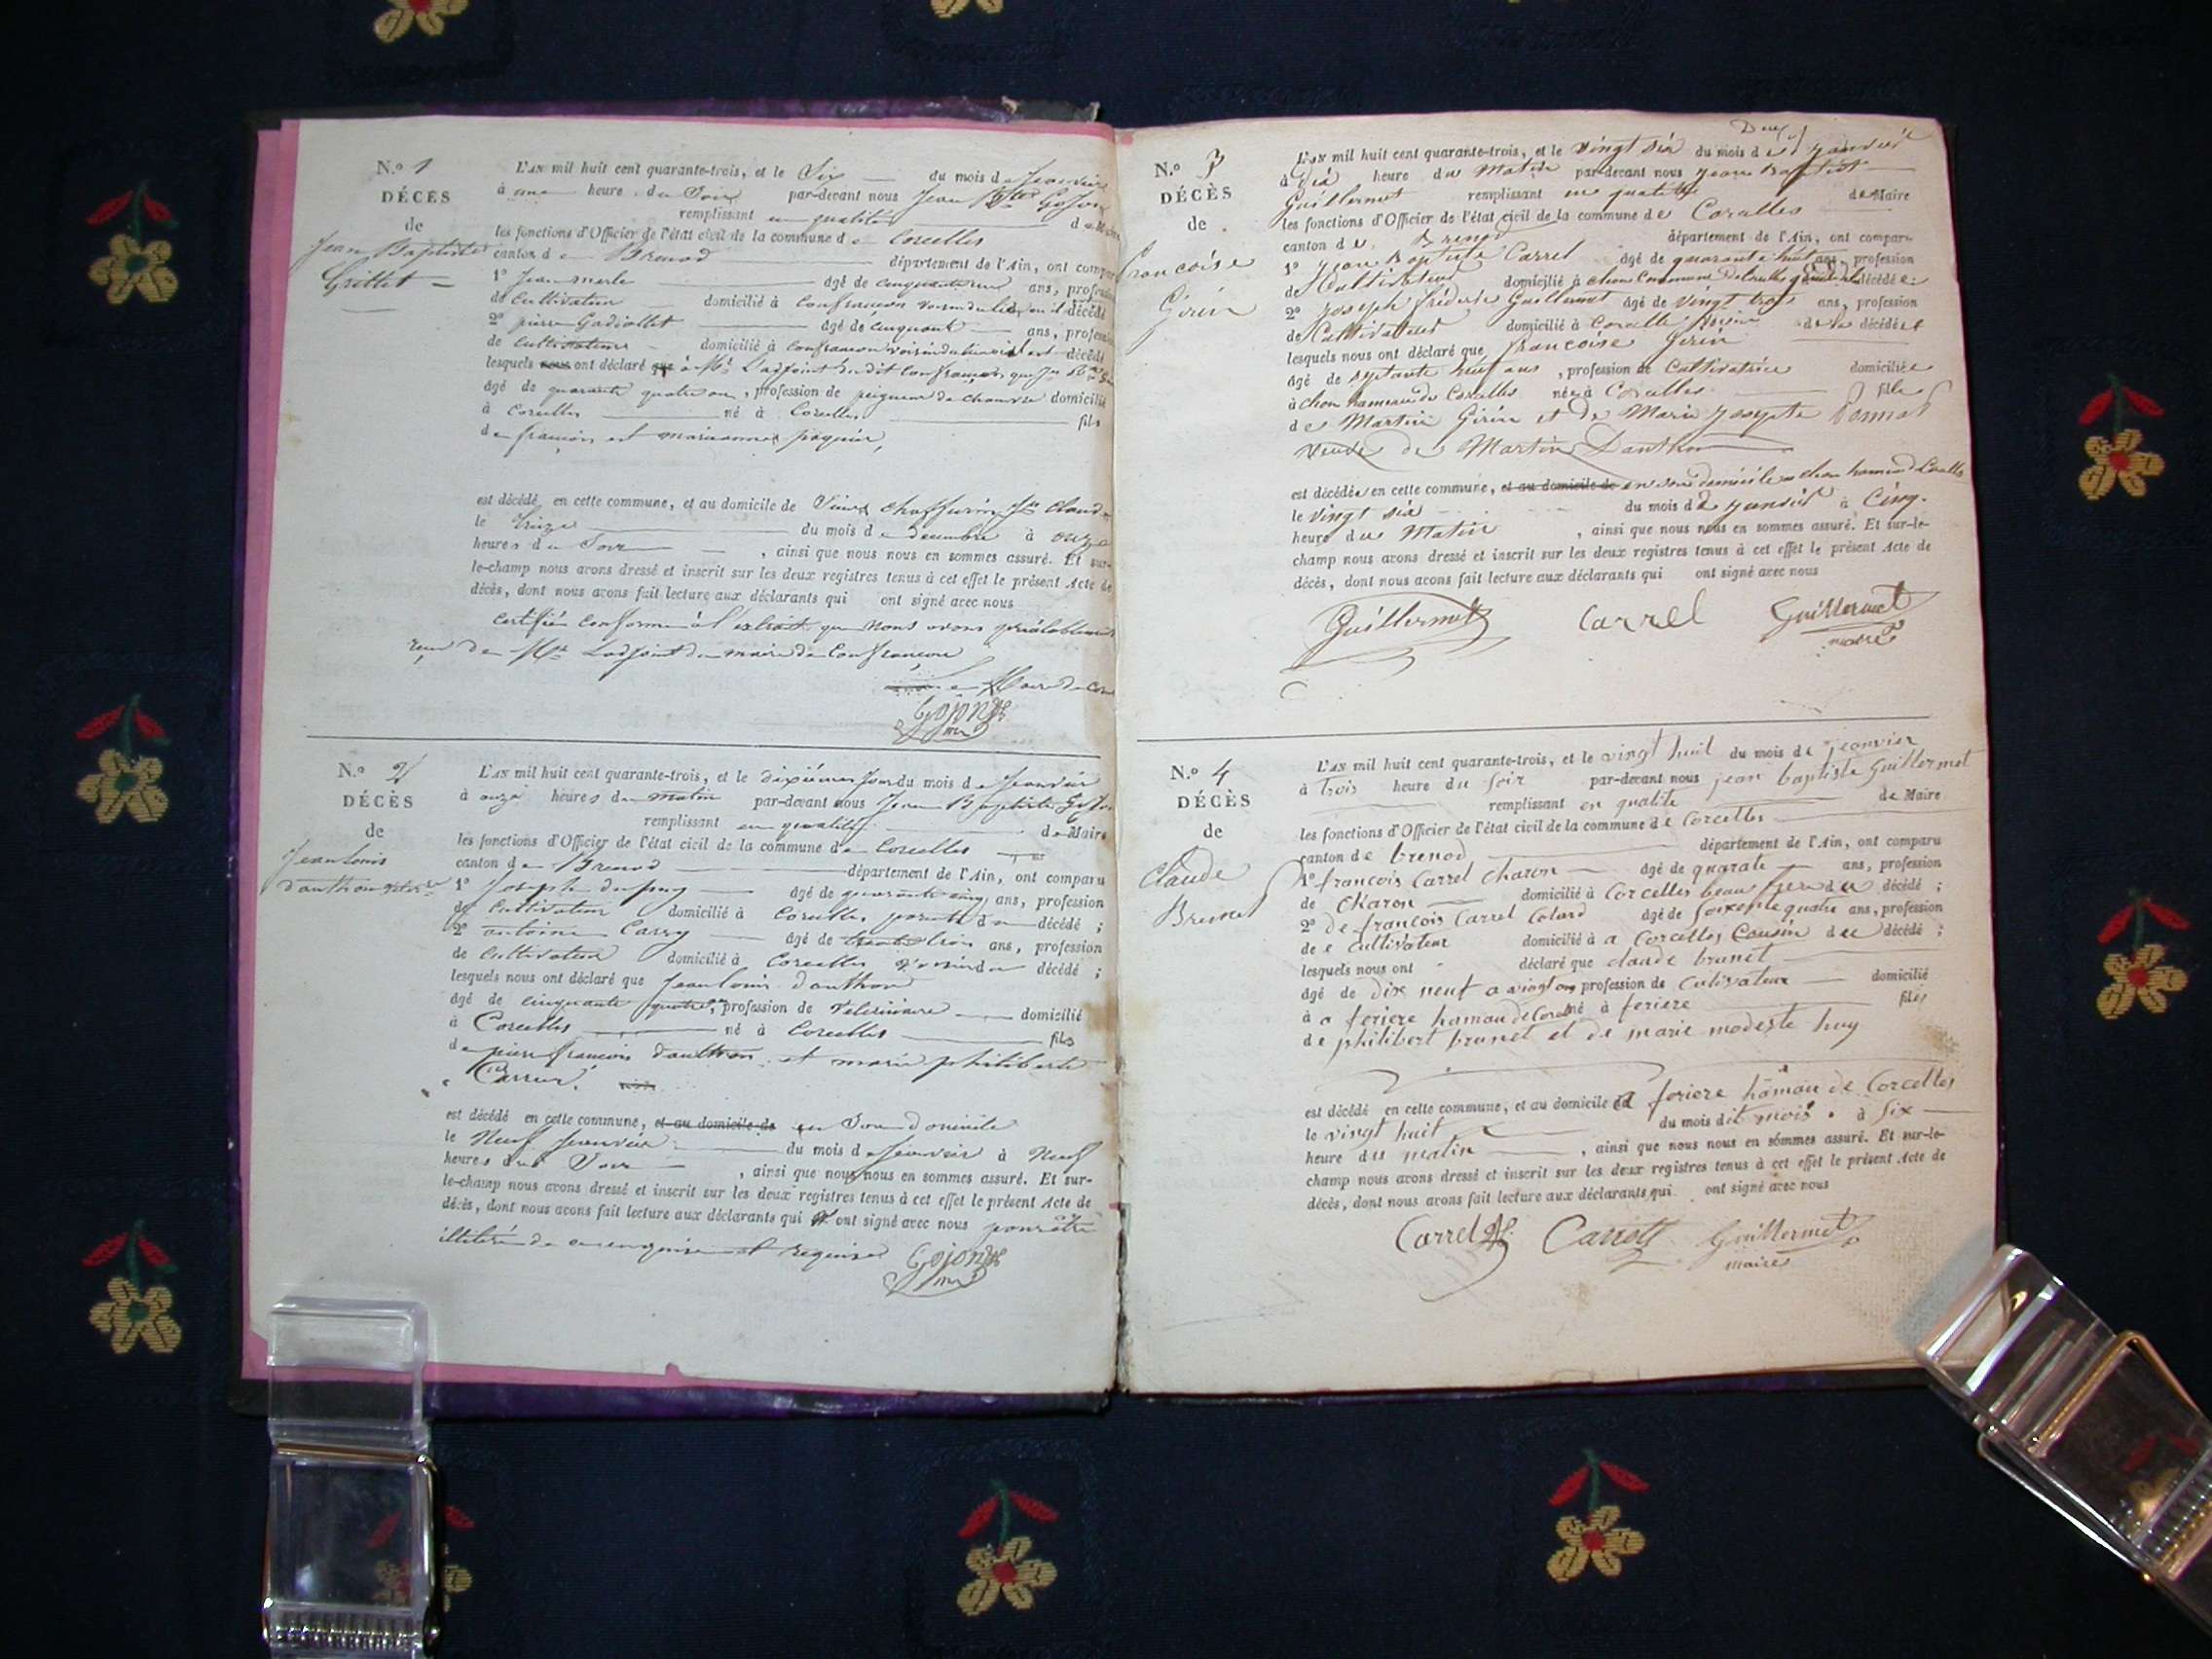 N.º 1
DÉCÈS
de
Jean Baptiste
Grillet
L'AN mil huit cent quarante-trois, et le Six du mois de Janvier
à une heure du Soir par-devant nous Jean Bte Gojon
remplissant en qualité de Maire
les fonctions d'Officier de l'état civil de la commune de Corcelles
canton de Brenod département de l'Ain, ont comparu
1º Jean merle âgé de cinquante ans, profession
de Cultivateur domicilié à Confrançon voisin du lieu où il décédé
2º pierre Gadiollet âgé de cinquante ans, profession
de Cultivateur domicilié à Confrançon voisin décédé
lesquels nous ont déclaré que à Mr L'adjoint dudit Confrançon que
âgé de quarante quatre ans, profession de peigneur de chanvre domicilié
à Corcelles né à Corcelles fils
de françois et marianne paquier,
est décédé en cette commune, et au domicile de Claude
le treize du mois de decembre à onze
heures du Soir , ainsi que nous nous en sommes assuré. Et sur-
le-champ nous avons dressé et inscrit sur les deux registres tenus à cet effet le présent Acte de
décès, dont nous avons fait lecture aux déclarants qui ont signé avec nous
certifié conforme à l'extrait que nous avons préalablement
reçu de Mr Ladjoint du maire de Confrançon
Maire de
Gojon
N.º 2
DÉCÈS
de
Jean louis
danthon
L'AN mil huit cent quarante-trois, et le dixième Jour du mois de Janvier
à onze heures du matin par-devant nous Jean Baptiste Gojon
remplissant en qualité de Maire
les fonctions d'Officier de l'état civil de la commune de Corcelles
canton de Brenod département de l'Ain, ont comparu
1º Joseph dupuy âgé de quarante cinq ans, profession
de Cultivateur domicilié à Corcelles parent du décédé ;
2º antoine Carry âgé de trente trois ans, profession
de Cultivateur domicilié à Corcelles voisin du décédé ;
lesquels nous ont déclaré que Jean louis danthon
âgé de cinquante quatre ans, profession de Vétérinaire domicilié
à Corcelles né à Corcelles fils
de pierre françois danthon et marie philiberte
Carrier.
est décédé en cette commune, et au domicile de en Son domicile
le Neuf Janvier du mois de Janvier à Neuf
heures du Soir , ainsi que nous nous en sommes assuré. Et sur-
le-champ nous avons dressé et inscrit sur les deux registres tenus à cet effet le présent Acte de
décès, dont nous avons fait lecture aux déclarants qui ont signé avec nous pour être
illitéré de ce enquis et requis
Gojon
N.º 3
DÉCÈS
de
francoise
Girin
Deux
L'AN mil huit cent quarante-trois, et le vingt six du mois de janvier
à dix heure du Matin par-devant nous Jean Baptiste
Guillermet remplissant en qualité de Maire
les fonctions d'Officier de l'état civil de la commune de Coralles
canton de Brenod département de l'Ain, ont comparu
1º Jean Baptiste Carrel âgé de quarante huit ans, profession
de Cultivateur domicilié à chon décédé e
2º Joseph frédéric Guillermet âgé de vingt trois ans, profession
de Cultivateur domicilié à Coralle voisin de la décédé e
lesquels nous ont déclaré que francoise Girin
âgé de septante neuf ans, profession de Cultivatrice domiciliée
à chon hameau de Coralles née à Coralles fille
de Martin Girin et de Marie Josepte
veuve de Martin Danthon
est décédée en cette commune, et au domicile de en sont domicile a chon hameau de Coralles
le vingt six du mois de janvier à Cinq
heure du Matin , ainsi que nous nous en sommes assuré. Et sur-le-
champ nous avons dressé et inscrit sur les deux registres tenus à cet effet le présent Acte de
décès, dont nous avons fait lecture aux déclarants qui ont signé avec nous
Guillermet Carrel Guillermet
maire
N.º 4
DÉCÈS
de
Claude
Brunet
L'AN mil huit cent quarante-trois, et le vingt huit du mois de janvier
à trois heure du soir par-devant nous jean baptiste Guillermet
remplissant en qualite de Maire
les fonctions d'Officier de l'état civil de la commune de Corcelles
canton de brenod département de l'Ain, ont comparu
1º francois Carrel Charon âgé de quarate ans, profession
de Charon domicilié à Corcelles beau frere du décédé ;
2º De francois Carrel Colard âgé de soixente quatre ans, profession
de e cultivateur domicilié à a Corcelles Cousin du décédé ;
lesquels nous ont déclaré que claude brunet
âgé de dix neuf a vingt ans profession de Cultivateur domicilié
à a feriere hamau de Corcelles né à feriere fils
de philibert brunet et de marie modeste huy
est décédé en cette commune, et au domicile a feriere hamau de Corcelles
le vingt huit du mois dit mois à six
heure du matin , ainsi que nous nous en sommes assuré. Et sur-le-
champ nous avons dressé et inscrit sur les deux registres tenus à cet effet le présent Acte de
décès, dont nous avons fait lecture aux déclarants qui ont signé avec nous
Carrel Carrell Guillermet
maire